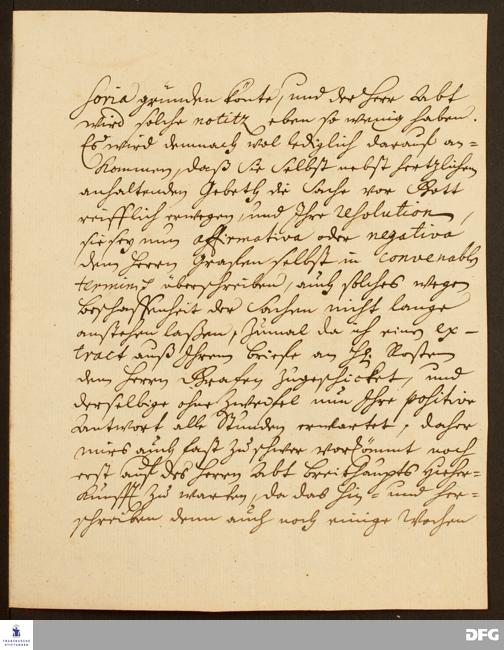 soria gründen könte, und der Herr Abt
wird solche notitz eben so wenig haben.
Es wird demnach wol lediglich darauf an-
kommen, daß Sie selbst nebst hertzlichen
anhaltenden Gebeth die Sache vor Gott
reifflich erwegen, und Ihre resolution,
sie sey nun affirmativa oder negativa
dem Herrn Grafen selbst in convenablen
terminis überschreiben, auch solches wegen
Beschaffenheit der Sachen nicht lange
anstehen laßen, zumal da ich einen ex-
tract auß Ihrem Briefe an H. Kosten
dem Herrn Grafen zugeschicket, und
derselbige ohne Zweifel nun Ihre positive
Antwort alle Stunden erwartet, daher
mirs auch fast zu schwer vorkömmt noch
erst auf des Herrn Abt Breithaupts Hieher-
kunfft zu warten, da das hin- und her-
schreiben denn auch noch einige Wochen
FRANCKESCHE STIFTUNGEN
DFG